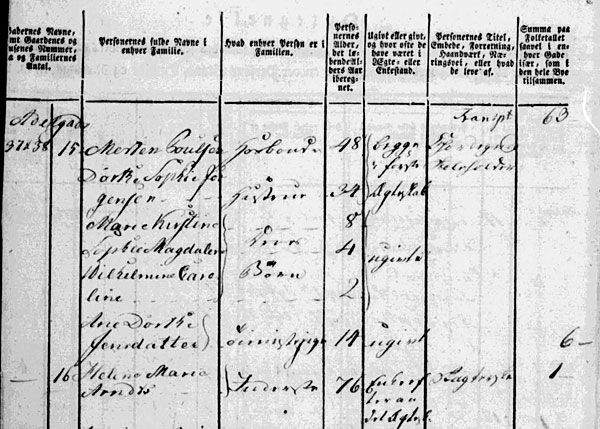 adernes Navne,
mt Gaardenes og
usenes Nummer,
a og Familiernes
Antal.
Personernes fulde Navne i
enhver Familie.
Hvad enhver Person er i
Familien.
Personernes
Alder,
der løbende
Alders Aar
iberegnet.
Ugivt eller givt,
og hvor ofte de
have været i
Ægte- eller
Enkestand.
Personernes Titel,
Embede, Forretning,
Haandværk, Næringsvei,
eller hvad
de leve af.
Summa paa
Folketallet
saavel i enhver
Gade
især, som i
den hele Bye
tilsammen.
Transpt 63
Adelgade
37 & 38 15 Morten Poulsen 48 begge
i første
Dorthe Sophie Jørgensen
Hustrue 34 Ægteskab
Marie Kirstine 8
Sophie Magdalene 4 ugivte
Wilhelmine Caroline
2
Børn
Ane Dorthe
Jensdatter Tjenistepige 14 ugivt 6
16 Helene Maria
Arndts Inderste 76 1